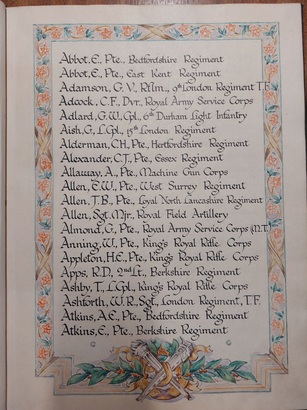 Abbot, E., Pte., Bedfordshire Regiment
Abbot, E., Pte., East Kent Regiment
Adamson, G. V., Rflm., 9th London Regiment T.F.
Adcock, C.F., Dvr., Royal Army Service Corps
Adlard, G.W., Cpl., 6th Durham Light Infantry
Aish, G., L.Cpl., 15th London Regiment
Alderman, C.H., Pte., Hertfordshire Regiment
Alexander, C.T., Pte., Essex Regiment
Allaway, A., Pte., Machine Gun Corps
Allen, E.W., Pte., West Surrey Regiment
Allen, T.B., Pte., Loyal North Lancashire Regiment
Allen, Sgt. Mjr., Royal Field Artillery
Almond, G., Pte., Royal Army Service Corps (M.T.)
Anning, W., Pte., King's Royal Rifle Corps
Appleton, H.E., Pte., King's Royal Rifle Corps
Apps, R.D., 2nd Lt., Berkshire Regiment
Ashby, T., L.Cpl., King's Royal Rifle Corps
Ashforth, W. R., Sgt., London Regiment, T.F.
Atkins, A.E., Pte., Bedfordshire Regiment
Atkins, E., Pte., Berkshire Regiment